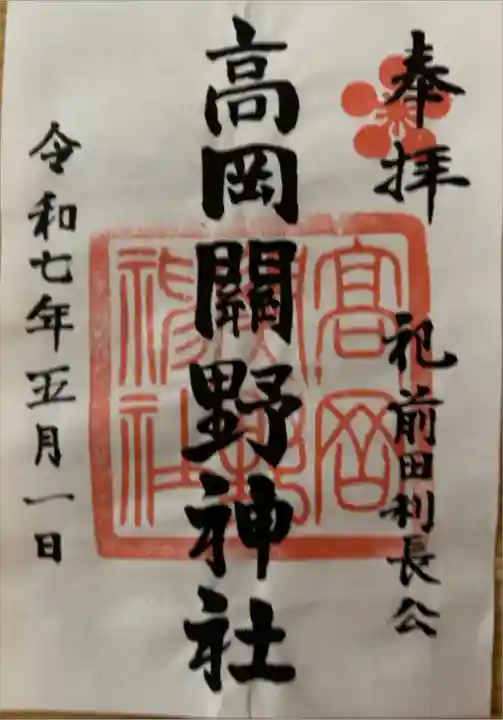 奉拝
祀前田利長公
高岡關野神社
高岡關野神社
令和七年五月一日